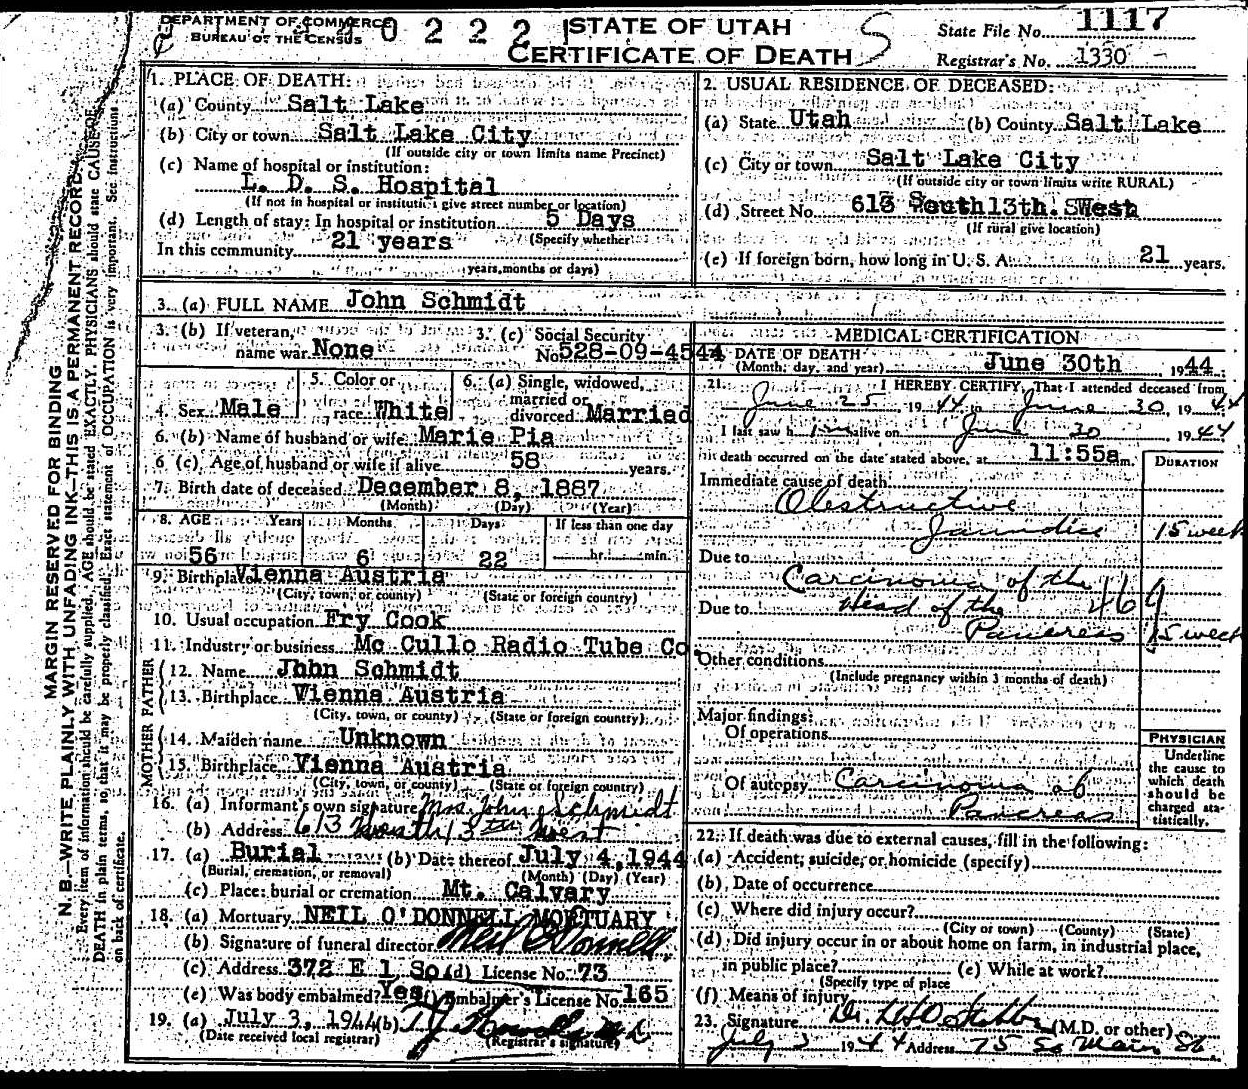 DEPARTMENT OF COMMERCE
BUREAU OF THE CENSUS
0 2 2 2
STATE OF UTAH
CERTIFICATE OF DEATH
S
State File No. 1117
Registrar's No. 1330
MARGIN RESERVED FOR BINDING
N. B.—WRITE PLAINLY WITH UNFADING INK—THIS IS A PERMANENT RECORD
Every item of information should be carefully supplied. AGE should be stated EXACTLY. PHYSICIANS should state CAUSE OF
DEATH in plain terms, so that it may be properly classified. Exact statement of OCCUPATION is very important. See instructions
on back of certificate.
1. PLACE OF DEATH:
(a) County Salt Lake
(b) City or town Salt Lake City
(If outside city or town limits name Precinct)
(c) Name of hospital or institution:
L. D. S. Hospital
(If not in hospital or institution give street number or location)
(d) Length of stay: In hospital or institution 5 Days
(Specify whether
In this community 21 years
years, months or days)
2. USUAL RESIDENCE OF DECEASED:
(a) State Utah (b) County Salt Lake
(c) City or town Salt Lake City
(If outside city or town limits write RURAL)
(d) Street No. 613 South 13th. West
(If rural give location)
(e) If foreign born, how long in U. S. A. 21 years.
3. (a) FULL NAME John Schmidt
3. (b) If veteran, name war None
3. (c) Social Security No. 528-09-4544
4. Sex Male
5. Color or race White
6. (a) Single, widowed, married or divorced Married
6. (b) Name of husband or wife Marie Pia
6 (c) Age of husband or wife if alive 58 years.
7. Birth date of deceased December 8, 1887
(Month) (Day) (Year)
8. AGE Years Months Days If less than one day
56 6 22 hr. min.
9. Birthplace Vienna Austria
(City, town, or county) (State or foreign country)
10. Usual occupation Fry Cook
11. Industry or business Mc Cullo Radio Tube Co.
FATHER
12. Name John Schmidt
13. Birthplace Vienna Austria
(City, town, or county) (State or foreign country)
MOTHER
14. Maiden name Unknown
15. Birthplace Vienna Austria
(City, town, or county) (State or foreign country)
16. (a) Informant's own signature Mrs. John Schmidt
(b) Address 613 South 13th West
17. (a) Burial (b) Date thereof July 4, 1944
(Burial, cremation, or removal) (Month) (Day) (Year)
(c) Place: burial or cremation Mt. Calvary
18. (a) Mortuary NEIL O'DONNELL MORTUARY
(b) Signature of funeral director Neil O'Donnell
(c) Address 372 E 1 So. (d) License No. 73
(e) Was body embalmed? Yes (f) Embalmer's License No. 165
19. (a) July 3, 1944 (b)
(Date received local registrar) (Registrar's signature)
MEDICAL CERTIFICATION
DATE OF DEATH
(Month, day, and year) June 30th 1944
21. I HEREBY CERTIFY, That I attended deceased from
June 25 1944 to June 30, 1944
I last saw him alive on June 30, 1944
death occurred on the date stated above, at 11:55a m.
DURATION
Immediate cause of death
Obstructive
Jaundice 15 week
Due to
Carcinoma of the
Due to Head of the
Pancreas 15 week
Other conditions
(Include pregnancy within 3 months of death)
Major findings:
Of operations
Of autopsy Carcinoma of
Pancreas
PHYSICIAN
Underline
the cause to
which death
should be
charged sta-
tistically.
22. If death was due to external causes, fill in the following:
(a) Accident, suicide, or homicide (specify)
(b) Date of occurrence
(c) Where did injury occur?
(City or town) (County) (State)
(d) Did injury occur in or about home on farm, in industrial place,
in public place? (e) While at work?
(Specify type of place
(f) Means of injury
23. Signature Dr. (M.D. or other)
July 1944 Address 75 So Main St.